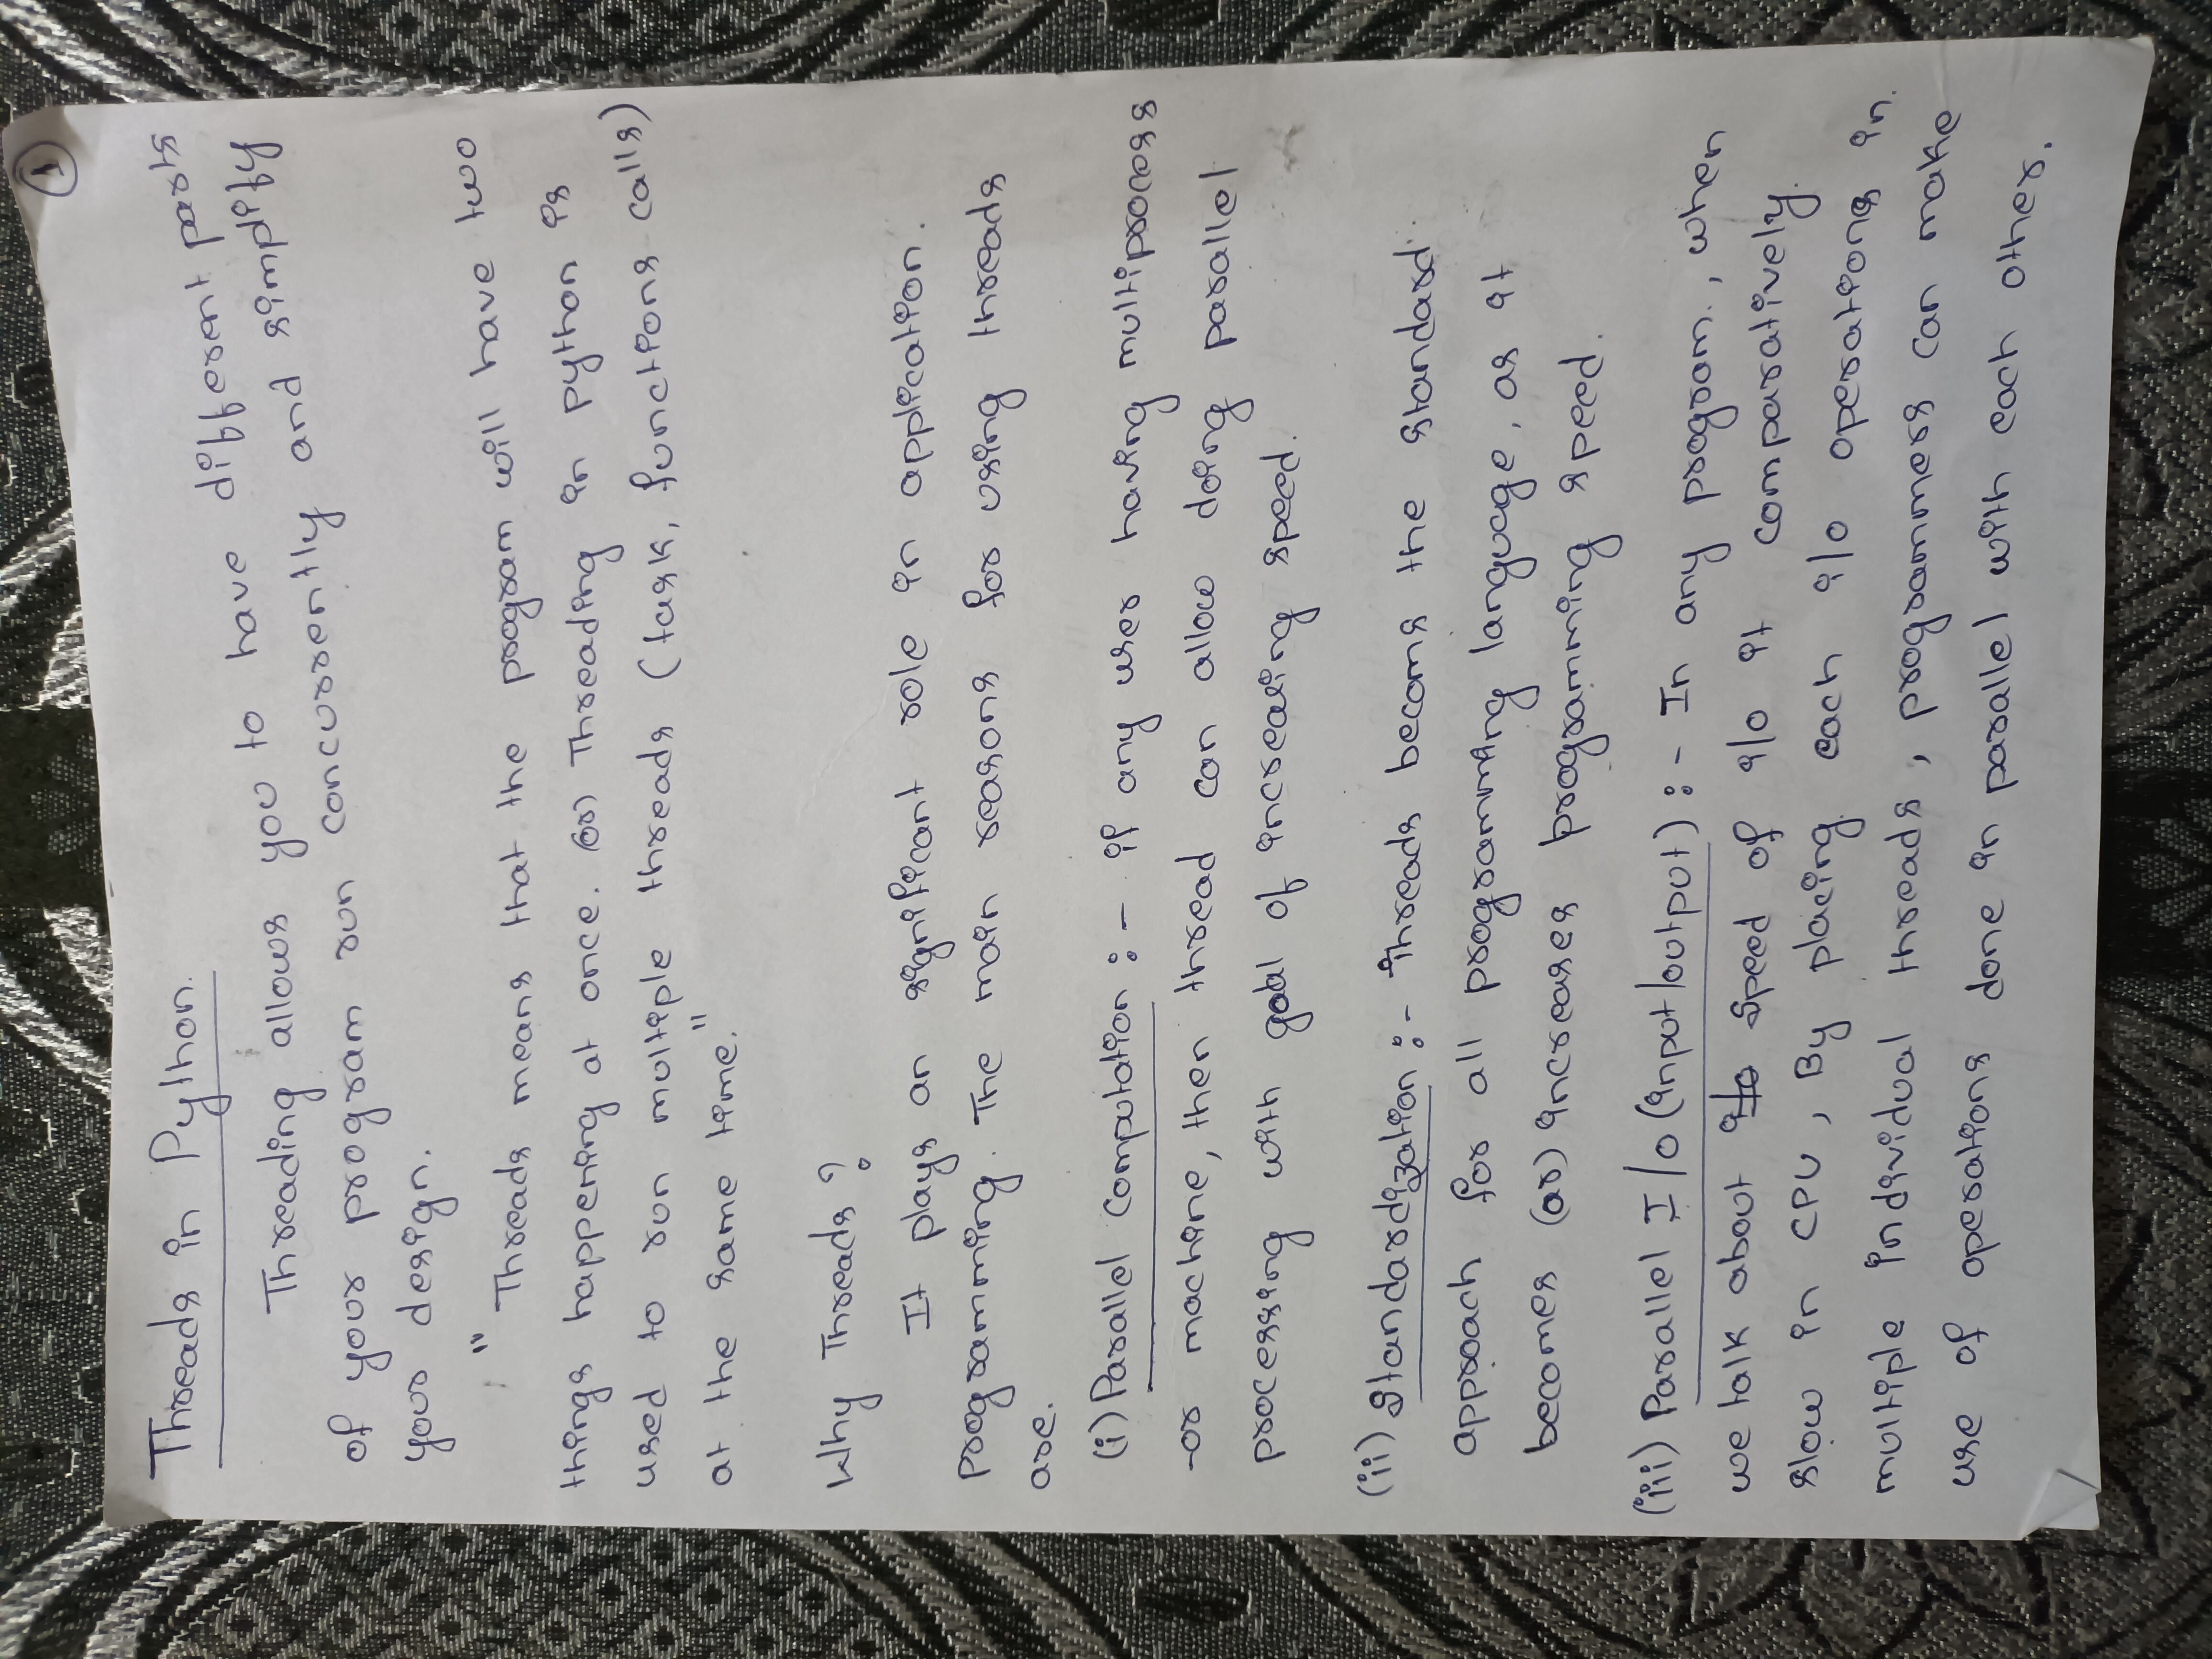 1
Threads in Python.
Threading allows you to have different parts
of your program run concurrently and simplify
your design.
"Threads means that the program will have two
things happening at once. (or) Threading in python is
used to run multiple threads (task, functions calls)
at the same time."
Why Threads?
It plays an significant role in application.
programming. The main reasons for using threads
are.
(i) Parallel Computation :- if any user having multiprocess
-or machine, then thread can allow doing parallel
processing with goal of increasing speed.
(ii) Standardization :- Threads becoms the standard
approach for all programming language, as it
becomes (or) increases programming speed.
(iii) Parallel I/O (input/output) :- In any program., when
we talk about i/o speed of i/o it comparatively.
slow in CPU, By placing each i/o operations in.
multiple individual threads, programmers can make
use of operations done in parallel with each other.